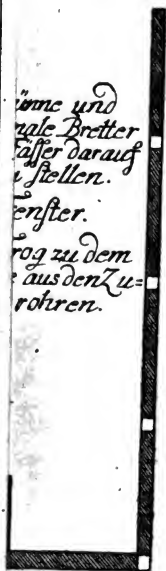 ünne und
male Bretter
Fässer darauf
u stellen.
enster.
rog zu dem
e aus den Zu=
rohren.